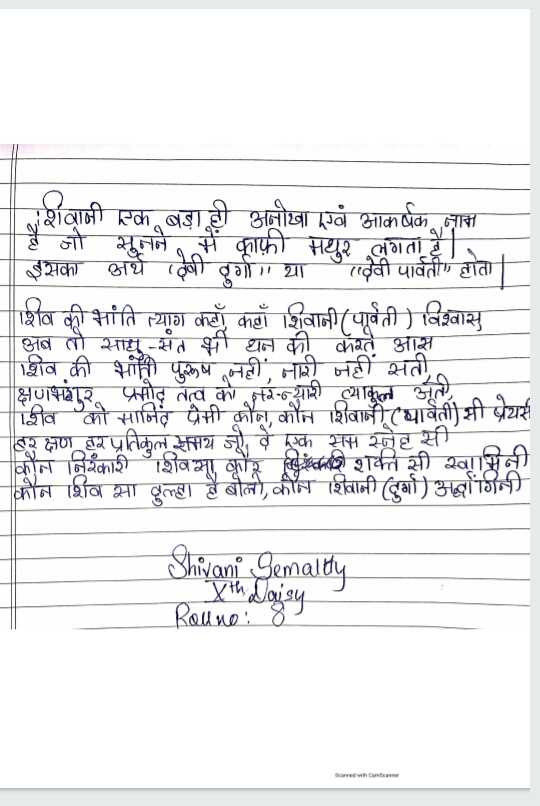 शिवानी एक बड़ा ही अनोखा एवं आकर्षक नाम
है जो सुनने में काफी मधुर लगता है|
इसका अर्थ "देवी दुर्गा" या "देवी पार्वती" होता|
शिव की भांति त्याग कहाँ कहाँ शिवानी (पार्वती) विश्वास
अब तो साधु-संत भी धन की करते आस
शिव की भाँती पुरुष नहीं, नारी नहीं सती,
क्षणभंगुर प्रमोद तत्व को नर-न्यारी व्याकुल अती,
शिव को मानित प्रेमी कौन, कौन शिवानी (पार्वती) सी प्रेयसी
हर क्षण हर प्रतिकुल समय जो, दे एक सम स्नेह सी
कौन निरंकारी शिव सा, कौर शक्ति सी स्वामिनी
कौन शिव सा दुल्हा है बोलो, कौन शिवानी (दुर्गा) अर्द्धांगिनी
Shivani Semalty
Xth Daisy
Roll no: 8
Scanned with CamScanner